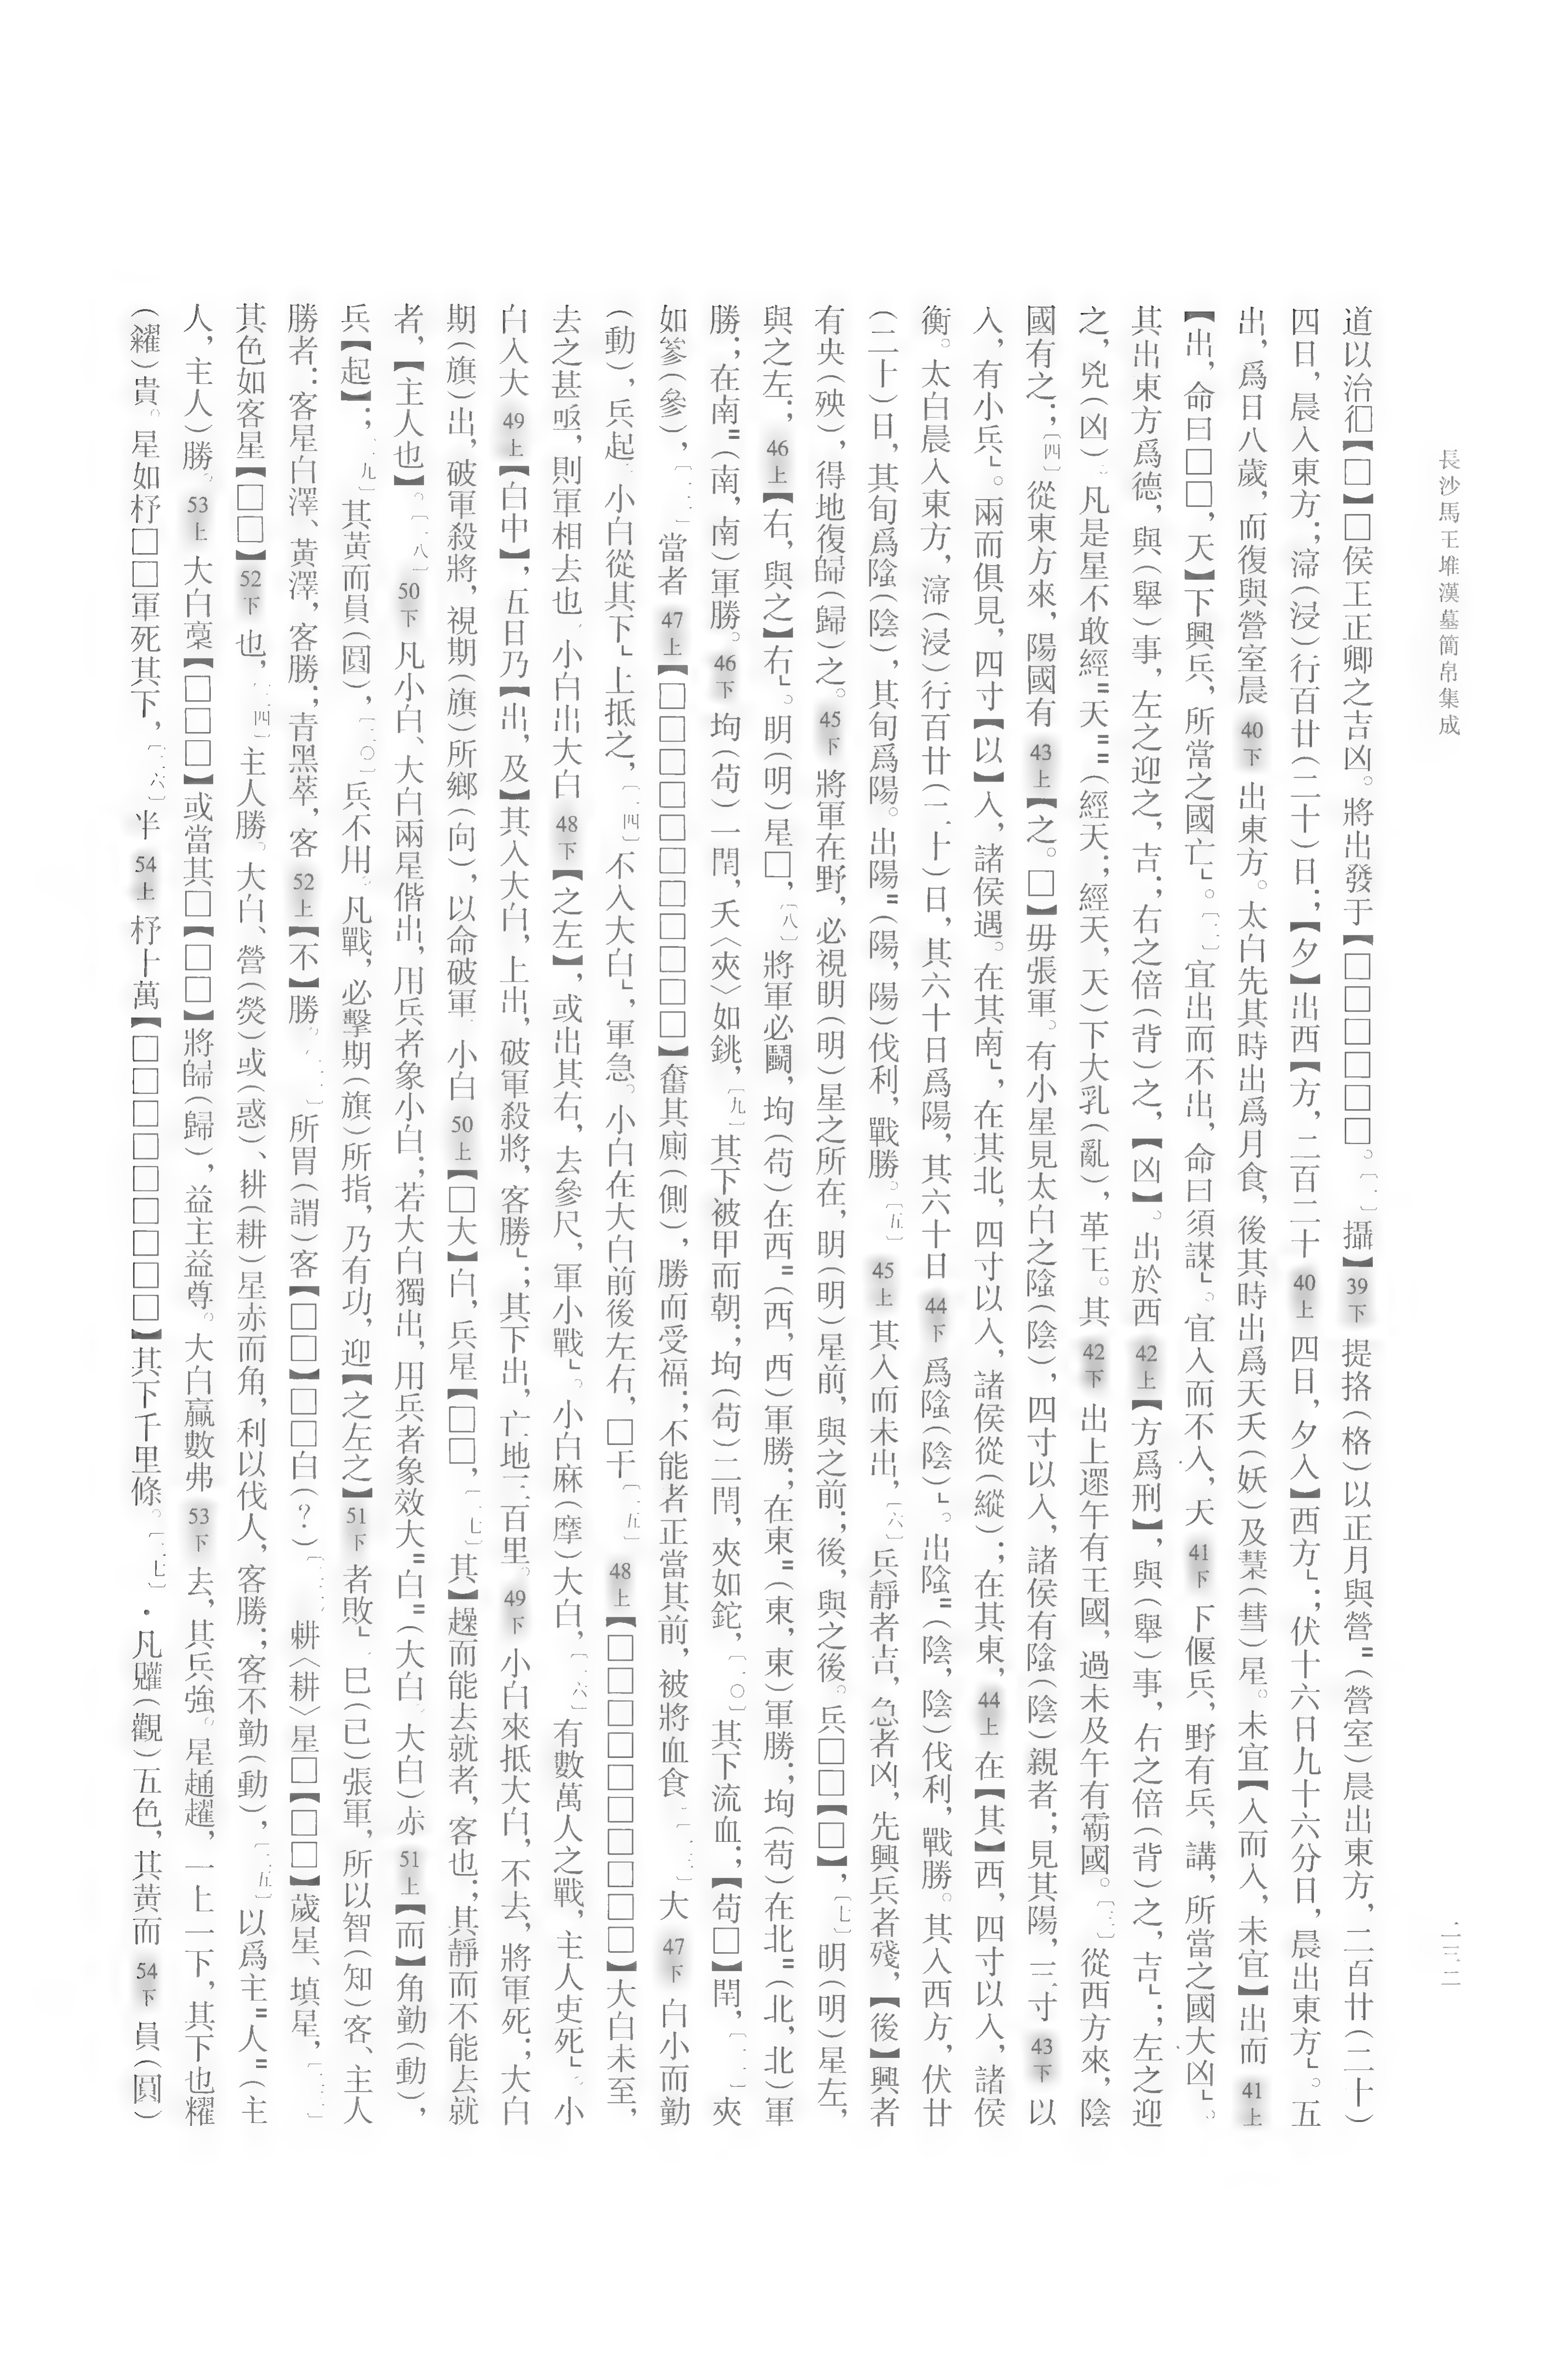 長沙馬王堆漢墓簡帛集成
二三二
道以治□【□】□侯王正卿之吉凶。將出發于【□□□□□□。〔一〕攝】39下提挌（格）以正月與營〓（營室）晨出東方，二百廿（二十）
四日，晨入東方；㴆（浸）行百廿（二十）日；【夕】出西【方，二百二十40上四日，夕入】西方∟；伏十六日九十六分日，晨出東方∟。五
出，爲日八歲，而復與營室晨40下出東方。太白先其時出爲月食，後其時出爲天夭（妖）及彗（彗）星。未宜【入而入，未宜】出而41上
【出，命曰□□，天】下興兵，所當之國亡∟。〔二〕宜出而不出，命曰須謀∟。宜入而不入，天41下下偃兵，野有兵，講，所當之國大凶∟。
其出東方爲德，與（舉）事，左之迎之，吉；右之倍（背）之，【凶】。出於西42上【方爲刑】，與（舉）事，右之倍（背）之，吉∟；左之迎
之，兇（凶）。凡是星不敢經〓天〓（經天；經天，天）下大乳（亂），革王。其42下出上遝午有王國，過未及午有霸國。〔三〕從西方來，陰
國有之；〔四〕從東方來，陽國有43上【之。□】毋張軍。有小星見太白之陰（陰），四寸以入，諸侯有陰（陰）親者；見其陽，三寸43下以
入，有小兵∟。兩而俱見，四寸【以】入，諸侯遇。在其南∟，在其北，四寸以入，諸侯從（縱）；在其東，44上在【其】西，四寸以入，諸侯
衡。太白晨入東方，㴆（浸）行百廿（二十）日，其六十日爲陽，其六十日44下爲陰（陰）∟。出陰〓（陰，陰）伐利，戰勝。其入西方，伏廿
（二十）日，其旬爲陰（陰），其旬爲陽。出陽〓（陽，陽）伐利，戰勝。〔五〕45上其入而未出，〔六〕兵靜者吉，急者凶，先興兵者殘，【後】興者
有央（殃），得地復歸（歸）之。45下將軍在野，必視明（明）星之所在，明（明）星前，與之前；後，與之後。兵□□【□】，〔七〕明（明）星左，
與之左；46上【右，與之】右∟。明（明）星□，〔八〕將軍必鬭，坸（苟）在西〓（西，西）軍勝；在東〓（東，東）軍勝；坸（苟）在北〓（北，北）軍
勝；在南〓（南，南）軍勝。46下坸（苟）一閈，夭〈夾〉如銚，〔九〕其下被甲而朝；坸（苟）二閈，夾如鉈，〔一〇〕其下流血；【苟□】閈，〔一一〕夾
如篸（參），〔一二〕當者47上【□□□□□□□□□□□】奮其廁（側），勝而受福；不能者正當其前，被將血食。〔一三〕大47下白小而動
（動），兵起。小白從其下∟上抵之，〔一四〕不入大白∟，軍急。小白在大白前後左右，□干〔一五〕48上【□□□□□□□□□□】大白未至，
去之甚亟，則軍相去也。小白出大白48下【之左】，或出其右，去參尺，軍小戰∟。小白麻（摩）大白，〔一六〕有數萬人之戰，主人吏死∟。小
白入大49上【白中】，五日乃【出，及】其入大白，上出，破軍殺將，客勝∟；其下出，亡地三百里。49下小白來抵大白，不去，將軍死；大白
期（旗）出，破軍殺將，視期（旗）所鄉（向），以命破軍。小白50上【□大】白，兵星【□□，〔一七〕其】趮而能去就者，客也；其靜而不能去就
者，【主人也】。〔一八〕50下凡小白、大白兩星偕出，用兵者象小白；若大白獨出，用兵者象效大〓白〓（大白。大白）赤51上【而】角動（動），
兵【起】；〔一九〕其黃而員（圓），〔二〇〕兵不用。凡戰，必擊期（旗）所指，乃有功，迎【之左之】51下者敗∟。巳（已）張軍，所以智（知）客、主人
勝者：客星白澤、黃澤，客勝；青黑萃，客52上【不】勝。〔二一〕所胃（謂）客【□□【□□白（？）〔二二〕耕〈耕〉星□【□□】歲星、填星，〔二三〕
其色如客星【□□】52下也，〔二四〕主人勝。大白、營（熒）或（惑）、耕（耕）星赤而角，利以伐人，客勝；客不動（動），〔二五〕以爲主〓人〓（主
人，主人）勝。53上大白稾【□□□】或當其□【□□】將歸（歸），益主益尊。大白贏數弗53下去，其兵強。星趮趯，一上一下，其下也糴
（糶）貴。星如杼□□軍死其下，〔二六〕半54上杼上萬【□□□□□□□□□】其下千里條。〔二七〕・凡觀（觀）五色，其黃而54下員（圓）